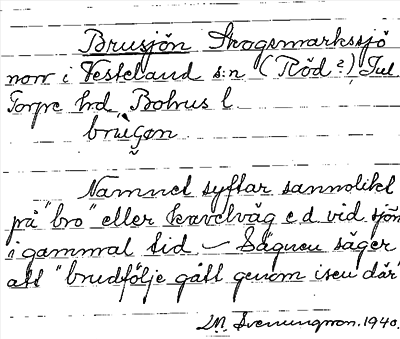 Brusjön Skogsmarkssjö
norr i Vesteland s:n (Röd?) Jul
Torpe hd, Bohus l.
brùGøn
Namnet syftar sannolikt
på "bro" eller kavelväg e.d. vid sjön
i gammal tid – Sägnen säger
att "brudfölje gått genom isen där"
M. Svenungson. 1940.